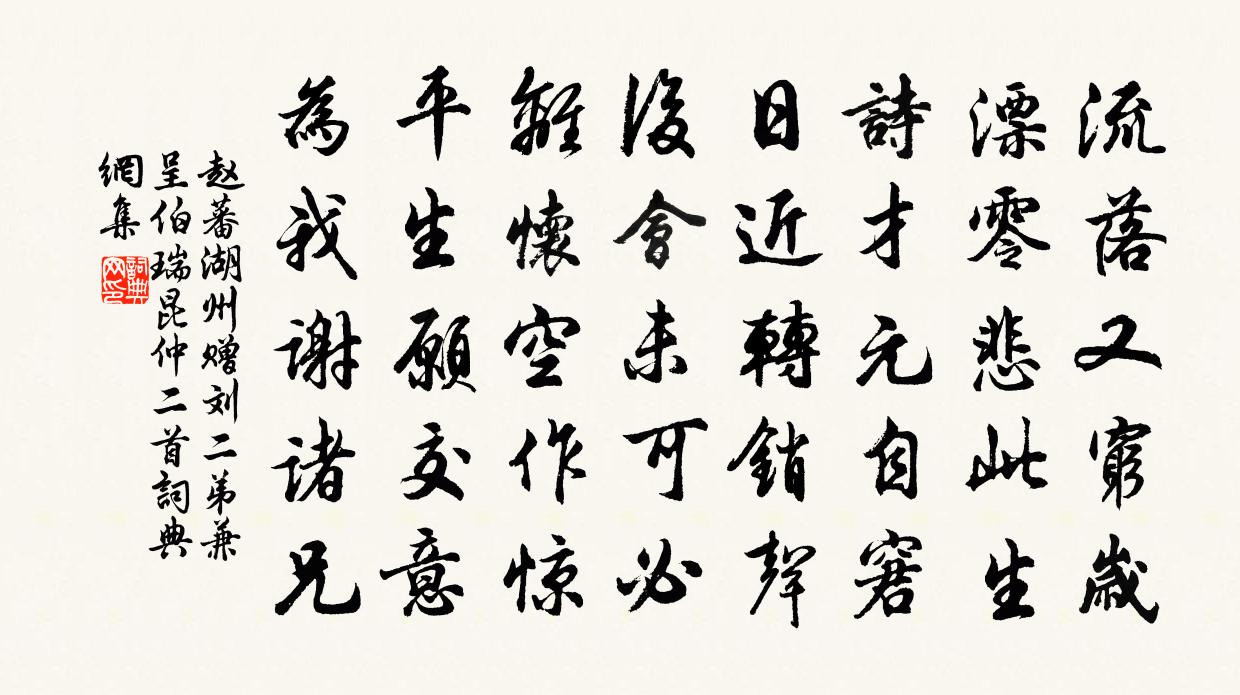 流落又窮歲
漂零悲此生
詩才元自窘
日近轉銷聲
後會未可必
離懷空作惊
平生願交意
為我謝諸兄
赵蕃湖州赠刘二弟兼
呈伯瑞昆仲二首詞典
網集
詞典
网印